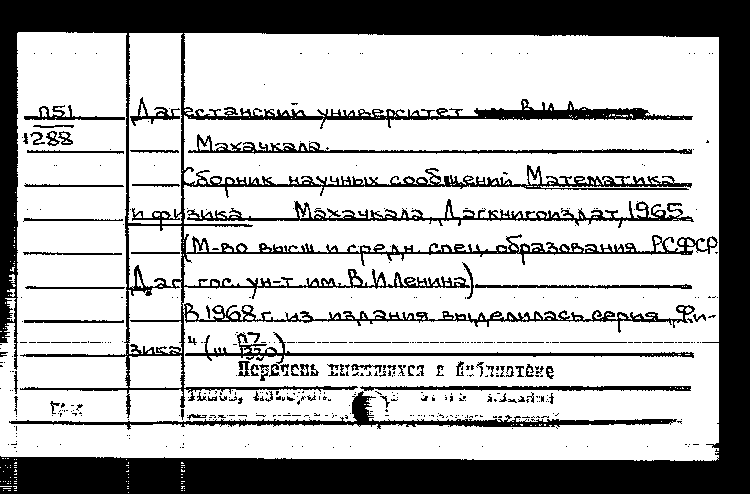 П51
1288
Дагестанский университет им. В.И.Ленина
Махачкала.
Сборник научных сообщений Математика
и физика. Махачкала, Дагкнигоиздат, 1965
(М-во высш и средн. спец. образования РСФСР.
Даг гос. ун-т им. В.И.Ленина)
В 1968 г. из издания выделилась серия „Фи-
зика" (ш П7/1320).
Перечень имеющихся в библиотеке
томов,